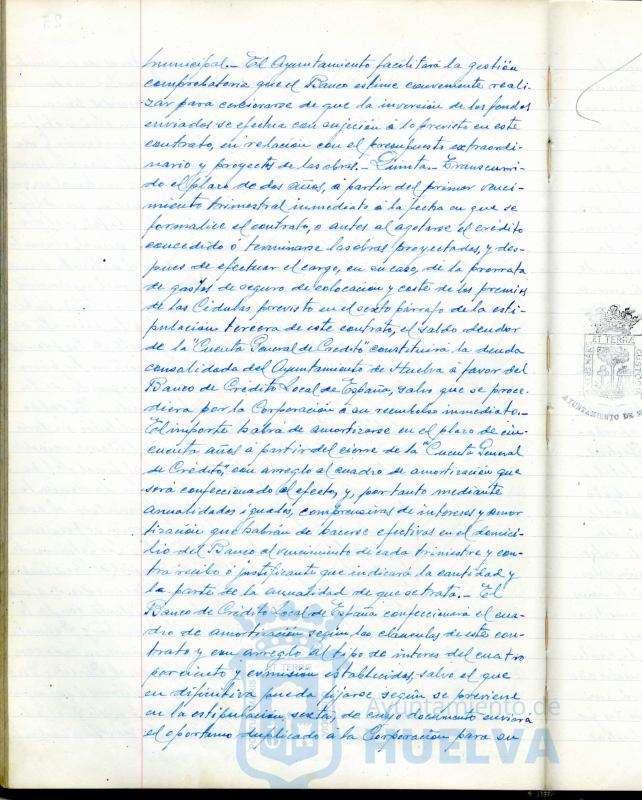 municipal.- El Ayuntamiento facilitará la gestión
comprobatoria que el Banco estime conveniente reali-
zar para cerciorarse de que la inversión de los fondos
enviados se efectua con sujeción á lo previsto en este
contrato, en relación con el presupuesto extraordi-
nario y proyectos de las obras.- Quinta.- Transcurri-
do el plazo de dos años, á partir del primer venci-
miento trimestral inmediato á la fecha en que se
formalice el contrato, o antes al agotarse el crédito
concedido ó terminarse las obras proyectadas, y des-
pues de efectuar el cargo, en su caso, de la prorrata
de gastos de seguro de colocación y coste de los premios
de las Cédulas previsto en el sexto párrafo de la esti-
pulación tercera de este contrato, el saldo deudor
de la "Cuenta General de Crédito" constituirá la deuda
consolidada del Ayuntamiento de Huelva á favor del
Banco de Crédito Local de España, salvo que se proce-
diera por la Corporación á su reembolso inmediato.-
El importe habrá de amortizarse en el plazo de cin-
cuenta años á partir del cierre de la "Cuenta General
de Crédito", con arreglo al cuadro de amortización que
será confeccionado al efecto, y, por tanto mediante
anualidades iguales, comprensivas de intereses y amor-
tización que habrán de hacerse efectivas en el domici-
lio del Banco al vencimiento de cada trimestre y con-
tra recibo ó justificante que indicará la cantidad y
la parte de la anualidad de que se trata.- El
Banco de Crédito Local de España confeccionará el cua-
dro de amortización según las cláusulas de este con-
trato y con arreglo al tipo de interes del cuatro
por ciento y comisión establecidos, salvo el que
en difinitiva pueda fijarse según se previene
en la estipulación sexta, de cuyo documento enviará
el oportuno duplicado á la Corporación para su
ET TERRÆ
AYUNTAMIENTO DE H
ET TERRÆ
Ayuntamiento de
HUELVA